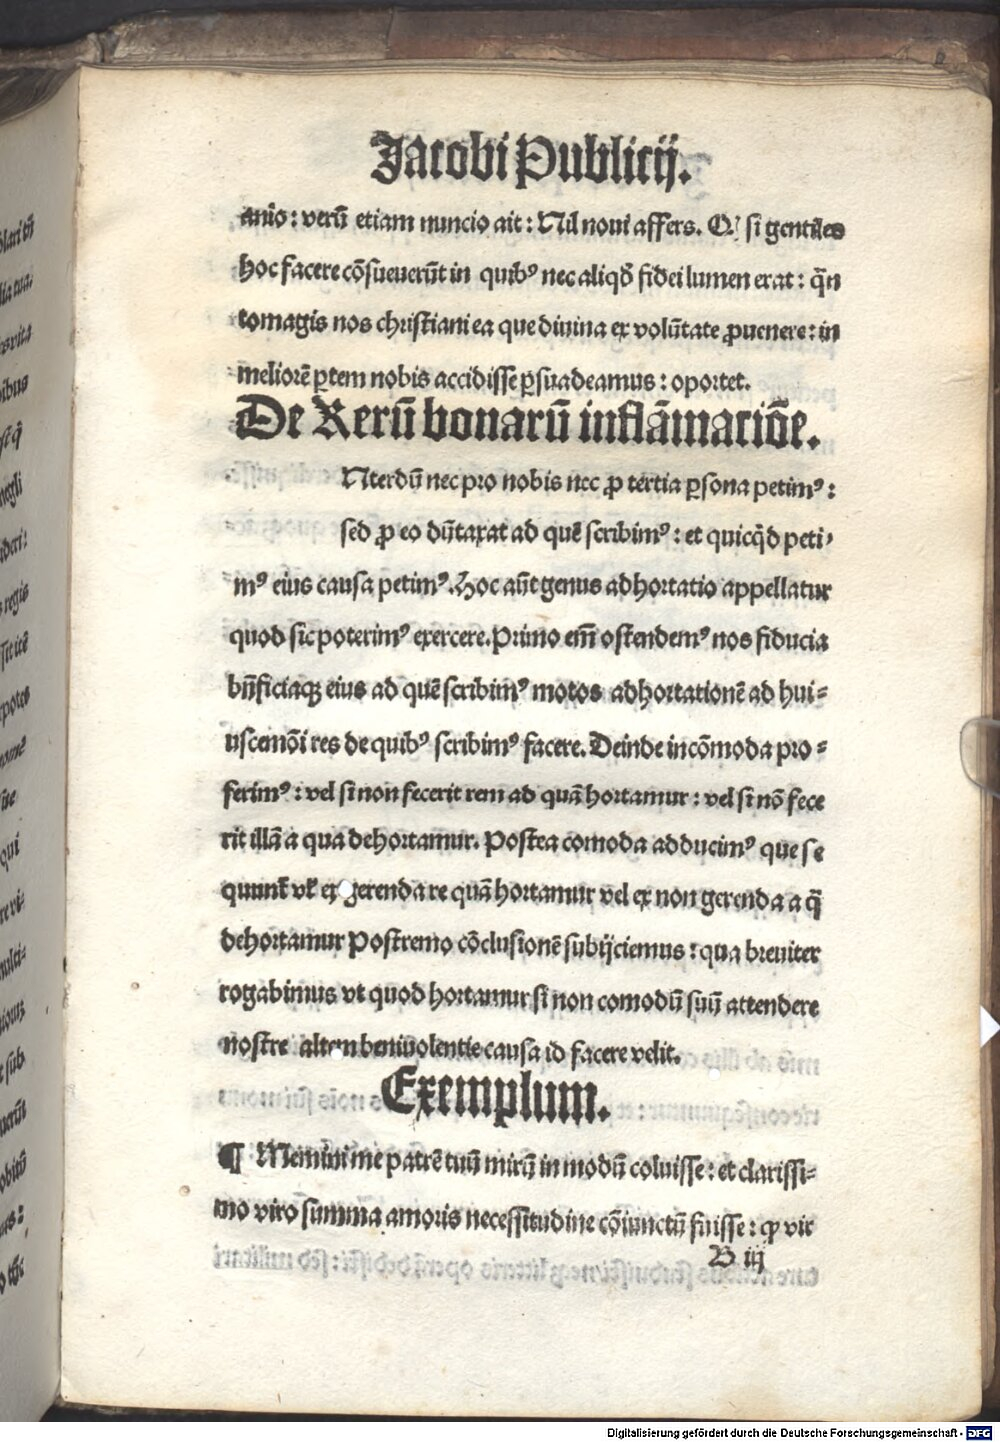 Jacobi Publicij.
anio: verū etiam nuncio ait: Nil noui affers. Q' si gentiles
hoc facere cōsueuerūt in quibꝰ nec aliqđ fidei lumen erat: q̄n
tomagis nos christiani ea que diuina ex volūtate ꝓuenere: in
meliorē ꝑtem nobis accidisse ꝑsuadeamus: oportet.
De Rerū bonarū inflāmatiōe.
Nterdū nec pro nobis nec ꝓ tertia ꝑsona petimꝰ:
sed ꝓ eo dūtaxat ad quē scribimꝰ: et quicq̄d peti,
mꝰ eius causa petimꝰ. Hoc aūt genus adhortatio appellatur
quod sic poterimꝰ exercere. Primo em̄ ostendemꝰ nos fiducia
bn̄ficiaqꝫ eius ad quē scribimꝰ motos adhortationē ad hui⸗
uscemōi res de quibꝰ scribimꝰ facere. Deinde incōmoda pro⸗
ferimꝰ: vel si non fecerit rem ad quā hortamur: vel si nō fece
rit illā a qua dehortamur. Postea comoda adducimꝰ que se
quunt̄ vl̄ ex gerenda re quā hortamur vel ex non gerenda a q̄
dehortamur Postremo cōclusionē subijciemus: qua breuiter
rogabimus vt quod hortamur si non comodū suū attendere
nostre altem beniuolentie causa id facere velit.
Exemplum.
¶ Memini me patrē tuū mirū in modū coluisse: et clarissi⸗
mo viro summa amoris necessitudine cōiunctū fuisse: ꝙ vir
B iij
Digitalisierung gefördert durch die Deutsche Forschungsgemeinschaft - DFG